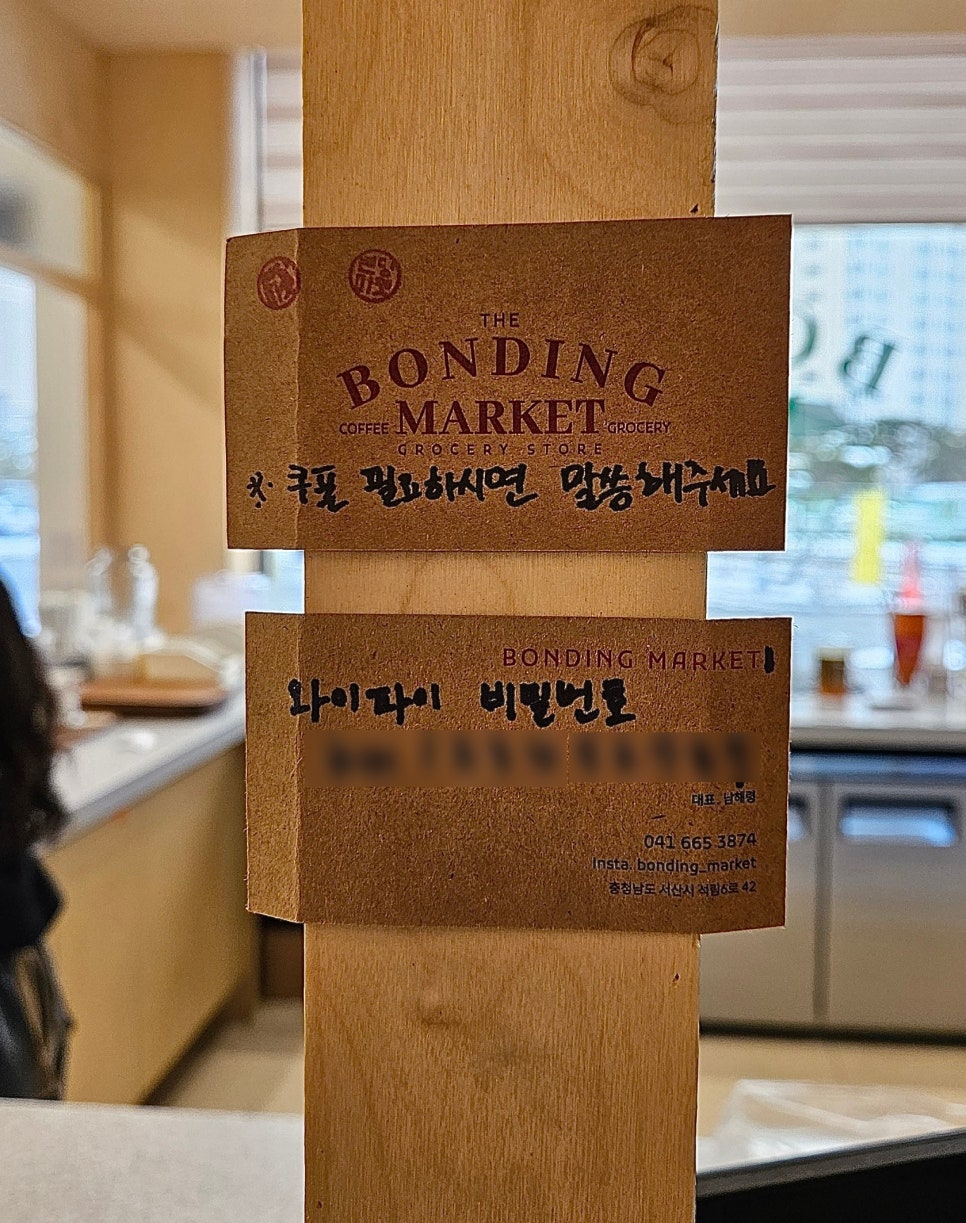 THE
BONDING
COFFEE MARKET GROCERY
GROCERY STORE
※. 쿠폰 필요하시면 말씀해주세요
BONDING MARKET
와이파이 비밀번호
대표. 남해령
041 665 3874
insta. bonding_market
충청남도 서산시 석림6로 42